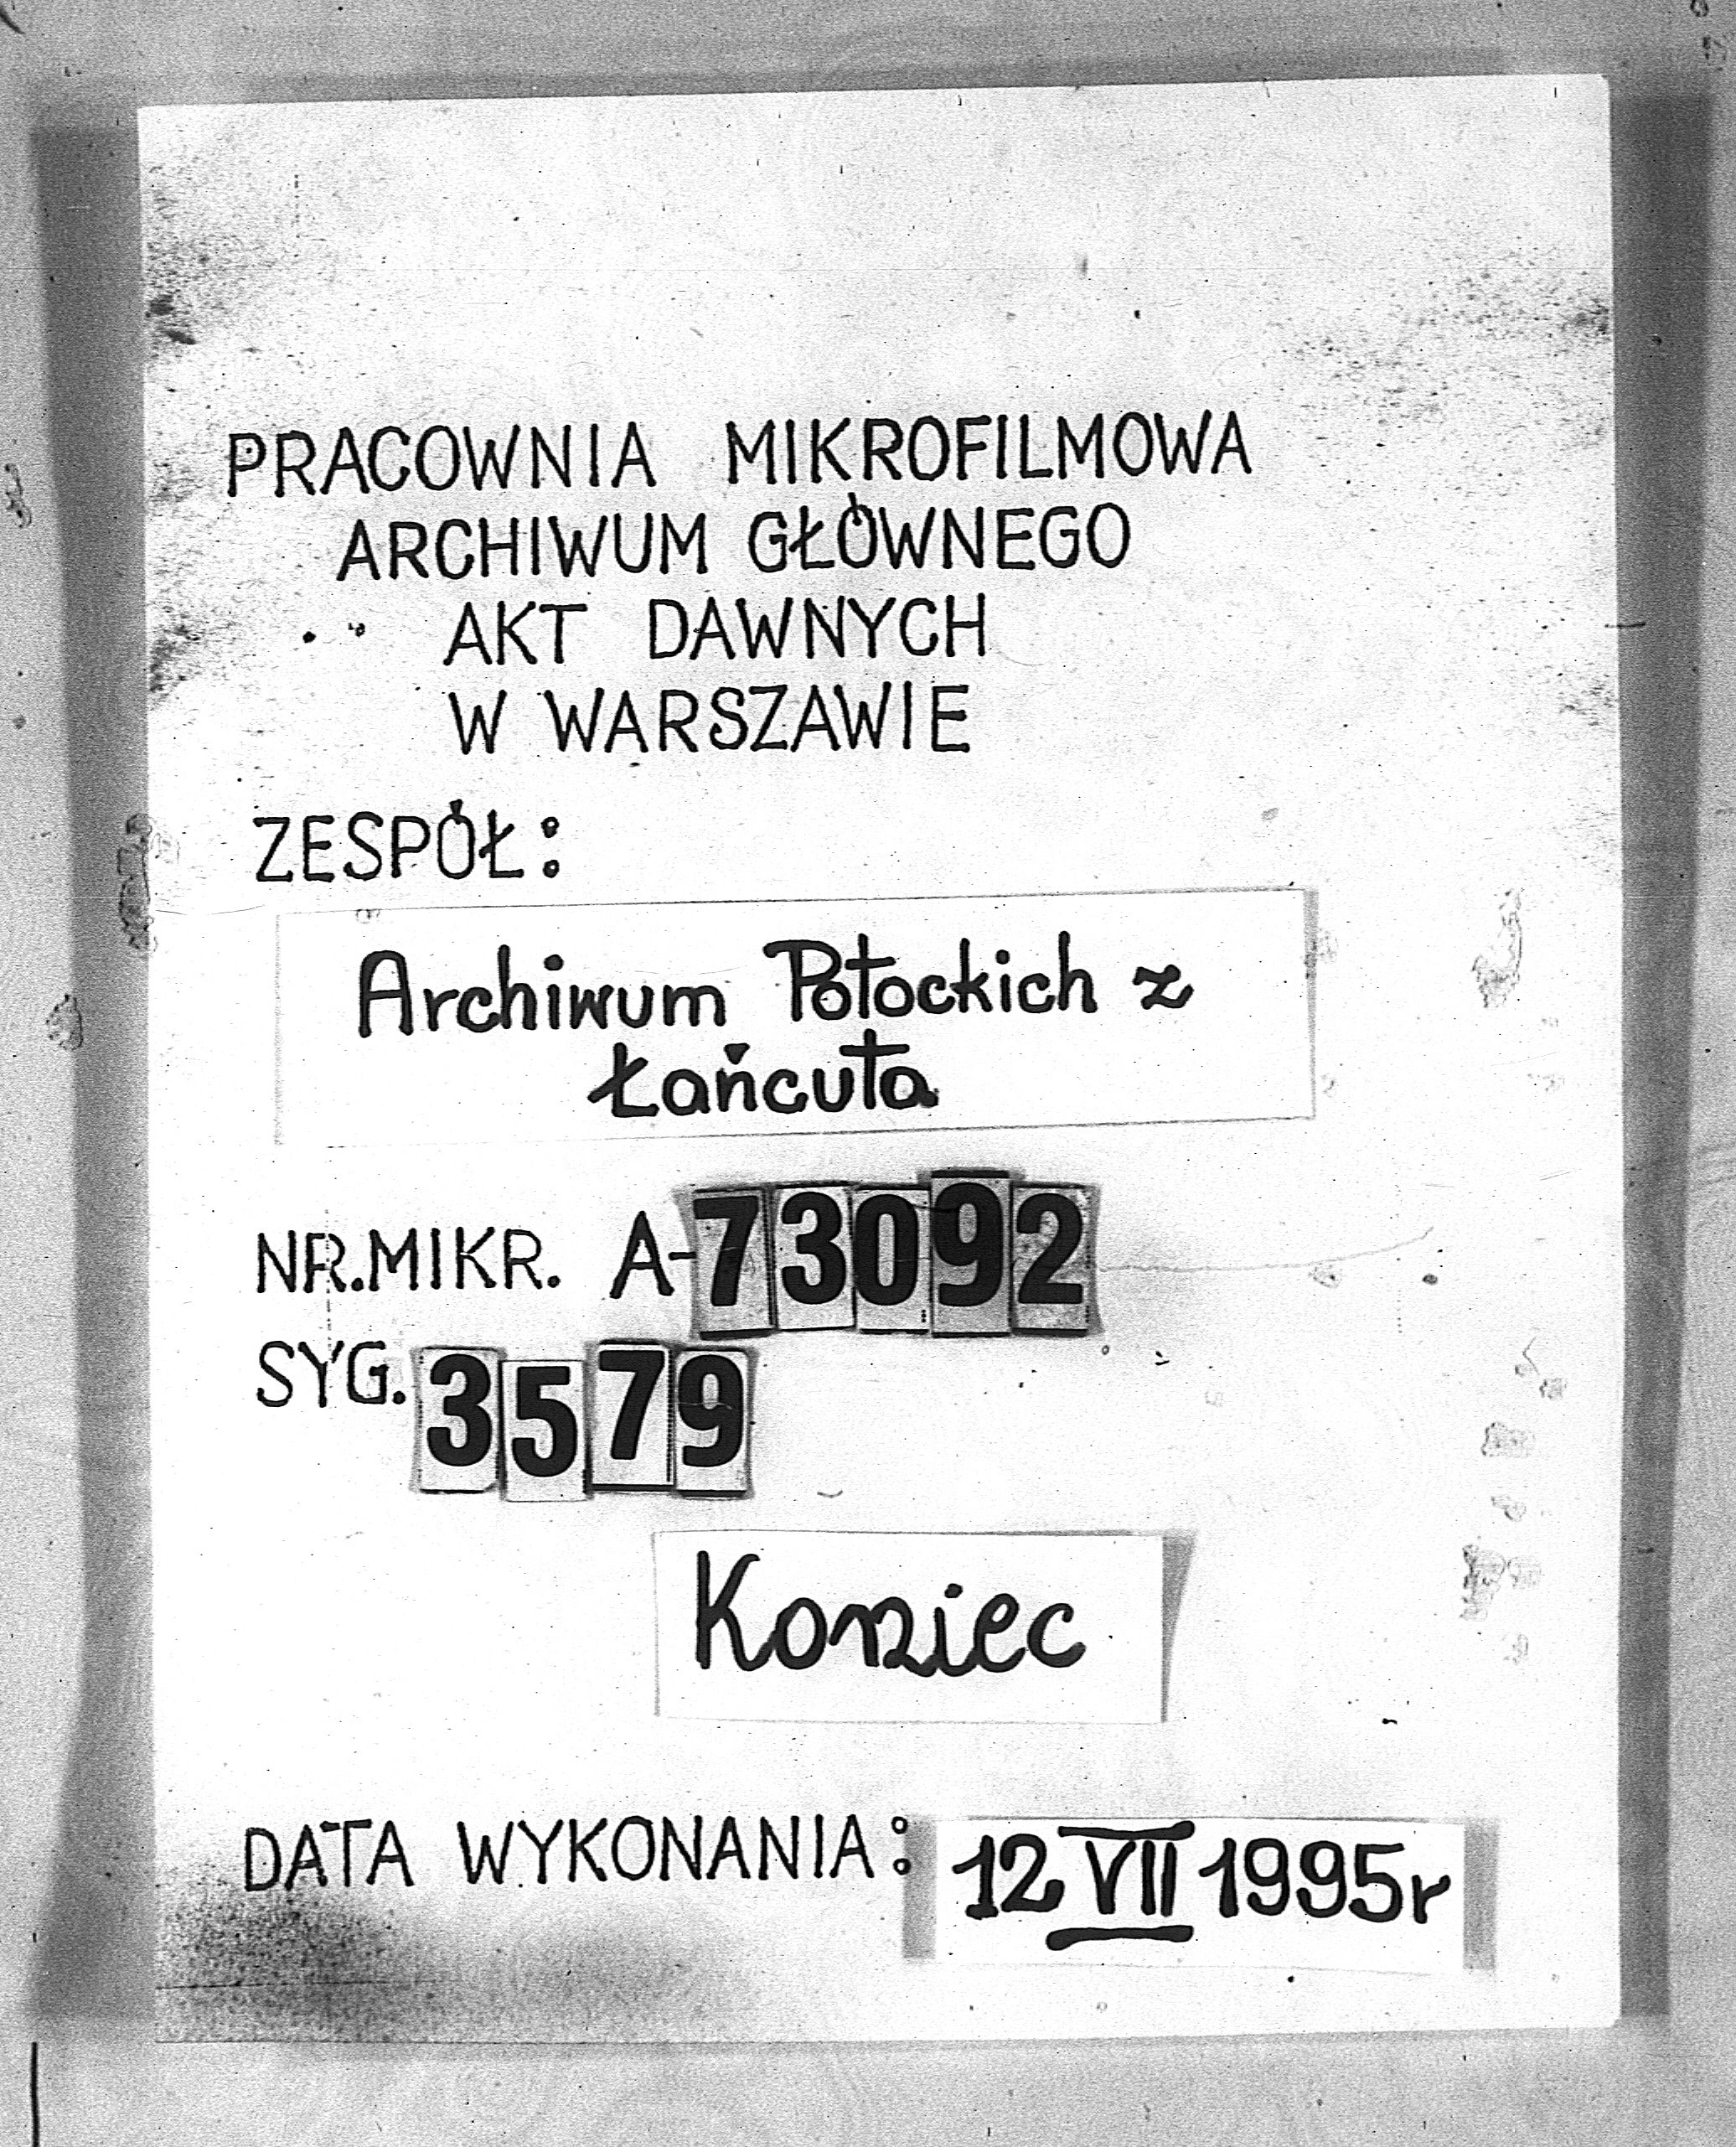 PRACOWNIA MIKROFILMOWA
ARCHIWUM GŁÓWNEGO
AKT DAWNYCH
W WARSZAWIE
ZESPÓŁ:
Archiwum Potockich z
Łańcuta
NR.MIKR. A-73092
SYG. 3579
Koniec
DATA WYKONANIA: 12 VII 1995r